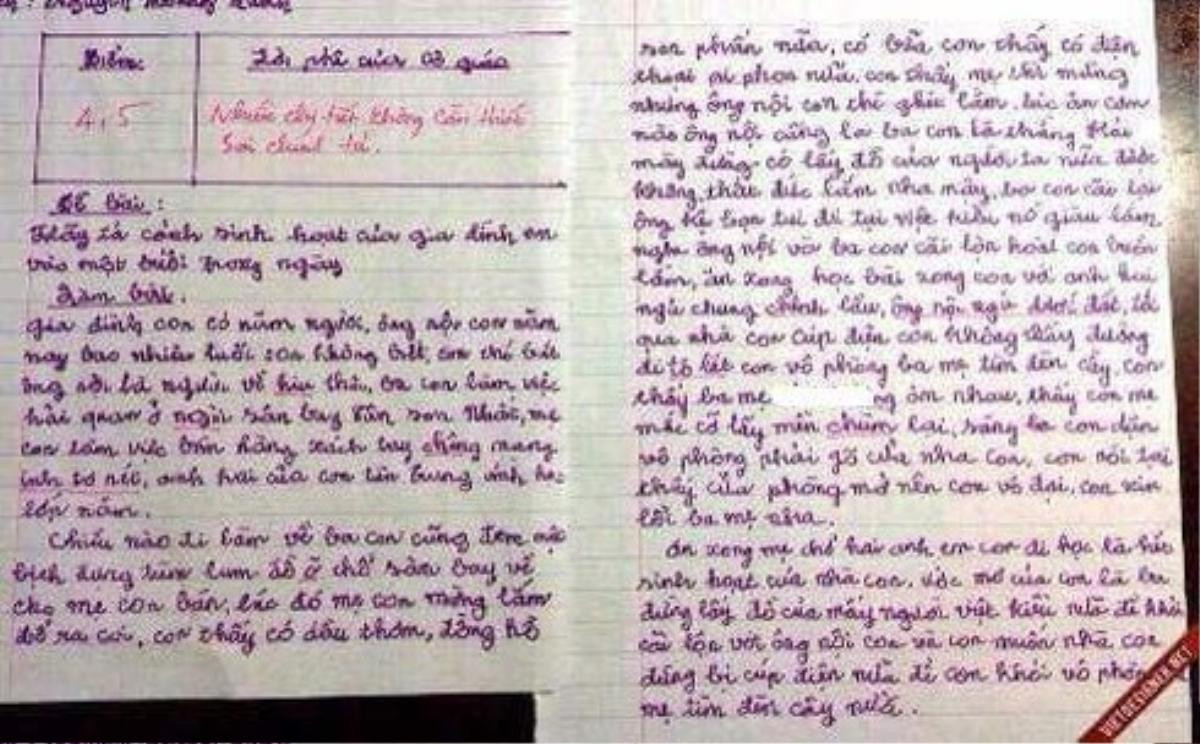 Điểm:
Lời phê của cô giáo
4,5
Nhiều chy tiết không cần thiết
Sai chính tả.
Đề bài:
Hãy tả cảnh sinh hoạt của gia đình em
vào một buổi trong ngày
Làm bài.
gia đing con có năm người, ông nội con năm
nay bao nhiêu tuổi con không biết, con chỉ biết
ông nội là người về hiu thôi, ba con làm việc
hải quan ở ngoài sân bay tân sơn nhất, mẹ
con làm việc bán hàng xách tay chông mang
inh tơ nét, anh hai của con tên hưng anh học
lớp năm.
Chiều nào đi làm về ba con cũng đem một
bịch đựng tùm lum đồ ở chổ sân bay về
cho mẹ con bán, lúc đó mẹ con mừng lắm
đổ ra coi, con thấy có dầu thơm, đồng hồ
son phấn nữa, có bữa con thấy có điện
thoại ai phon nữa, con thấy mẹ thì mừng
nhưng ông nội con chỉ ghét lắm, lúc ăn cơm
nào ông nội cũng la ba con là thằng Hải
mầy đừng có lấy đồ của người ta nữa được
không, thất đức lắm nha mầy, ba con cãi lại
ông kệ bọn tui đi tụi việt kiều nó giàu lắm
nghe ông nội và ba con cãi lộn hoài con buồn
lắm, ăn xong học bài xong con với anh hai
ngủ chung trên lầu, ông nội ngủ dưới đất, tối
qua nhà con cúp điện con không thấy đường
đi tô lét con vô phòng ba mẹ tìm đèn cầy, con
thấy ba mẹ ng ôm nhau, thấy con mẹ
mắc cỡ lấy mền chùm lại, sáng ba con dặn
vô phòng phải gõ cửa nha con, con nói tại
thấy cửa phòng mở nên con vô đại, con xin
lổi ba mẹ nha.
ăn xong mẹ chở hai anh em con đi học là hết
sinh hoạt của nhà con, ước mơ của con là ba
đừng lấy đồ của mấy người việt kiều nữa để khỏi
cãi lộn với ông nội con và con muốn nhà con
đừng bị cúp điện nữa để con khỏi vô phòng
mẹ tìm đèn cầy nữa.
VIETDESIGNER.NET